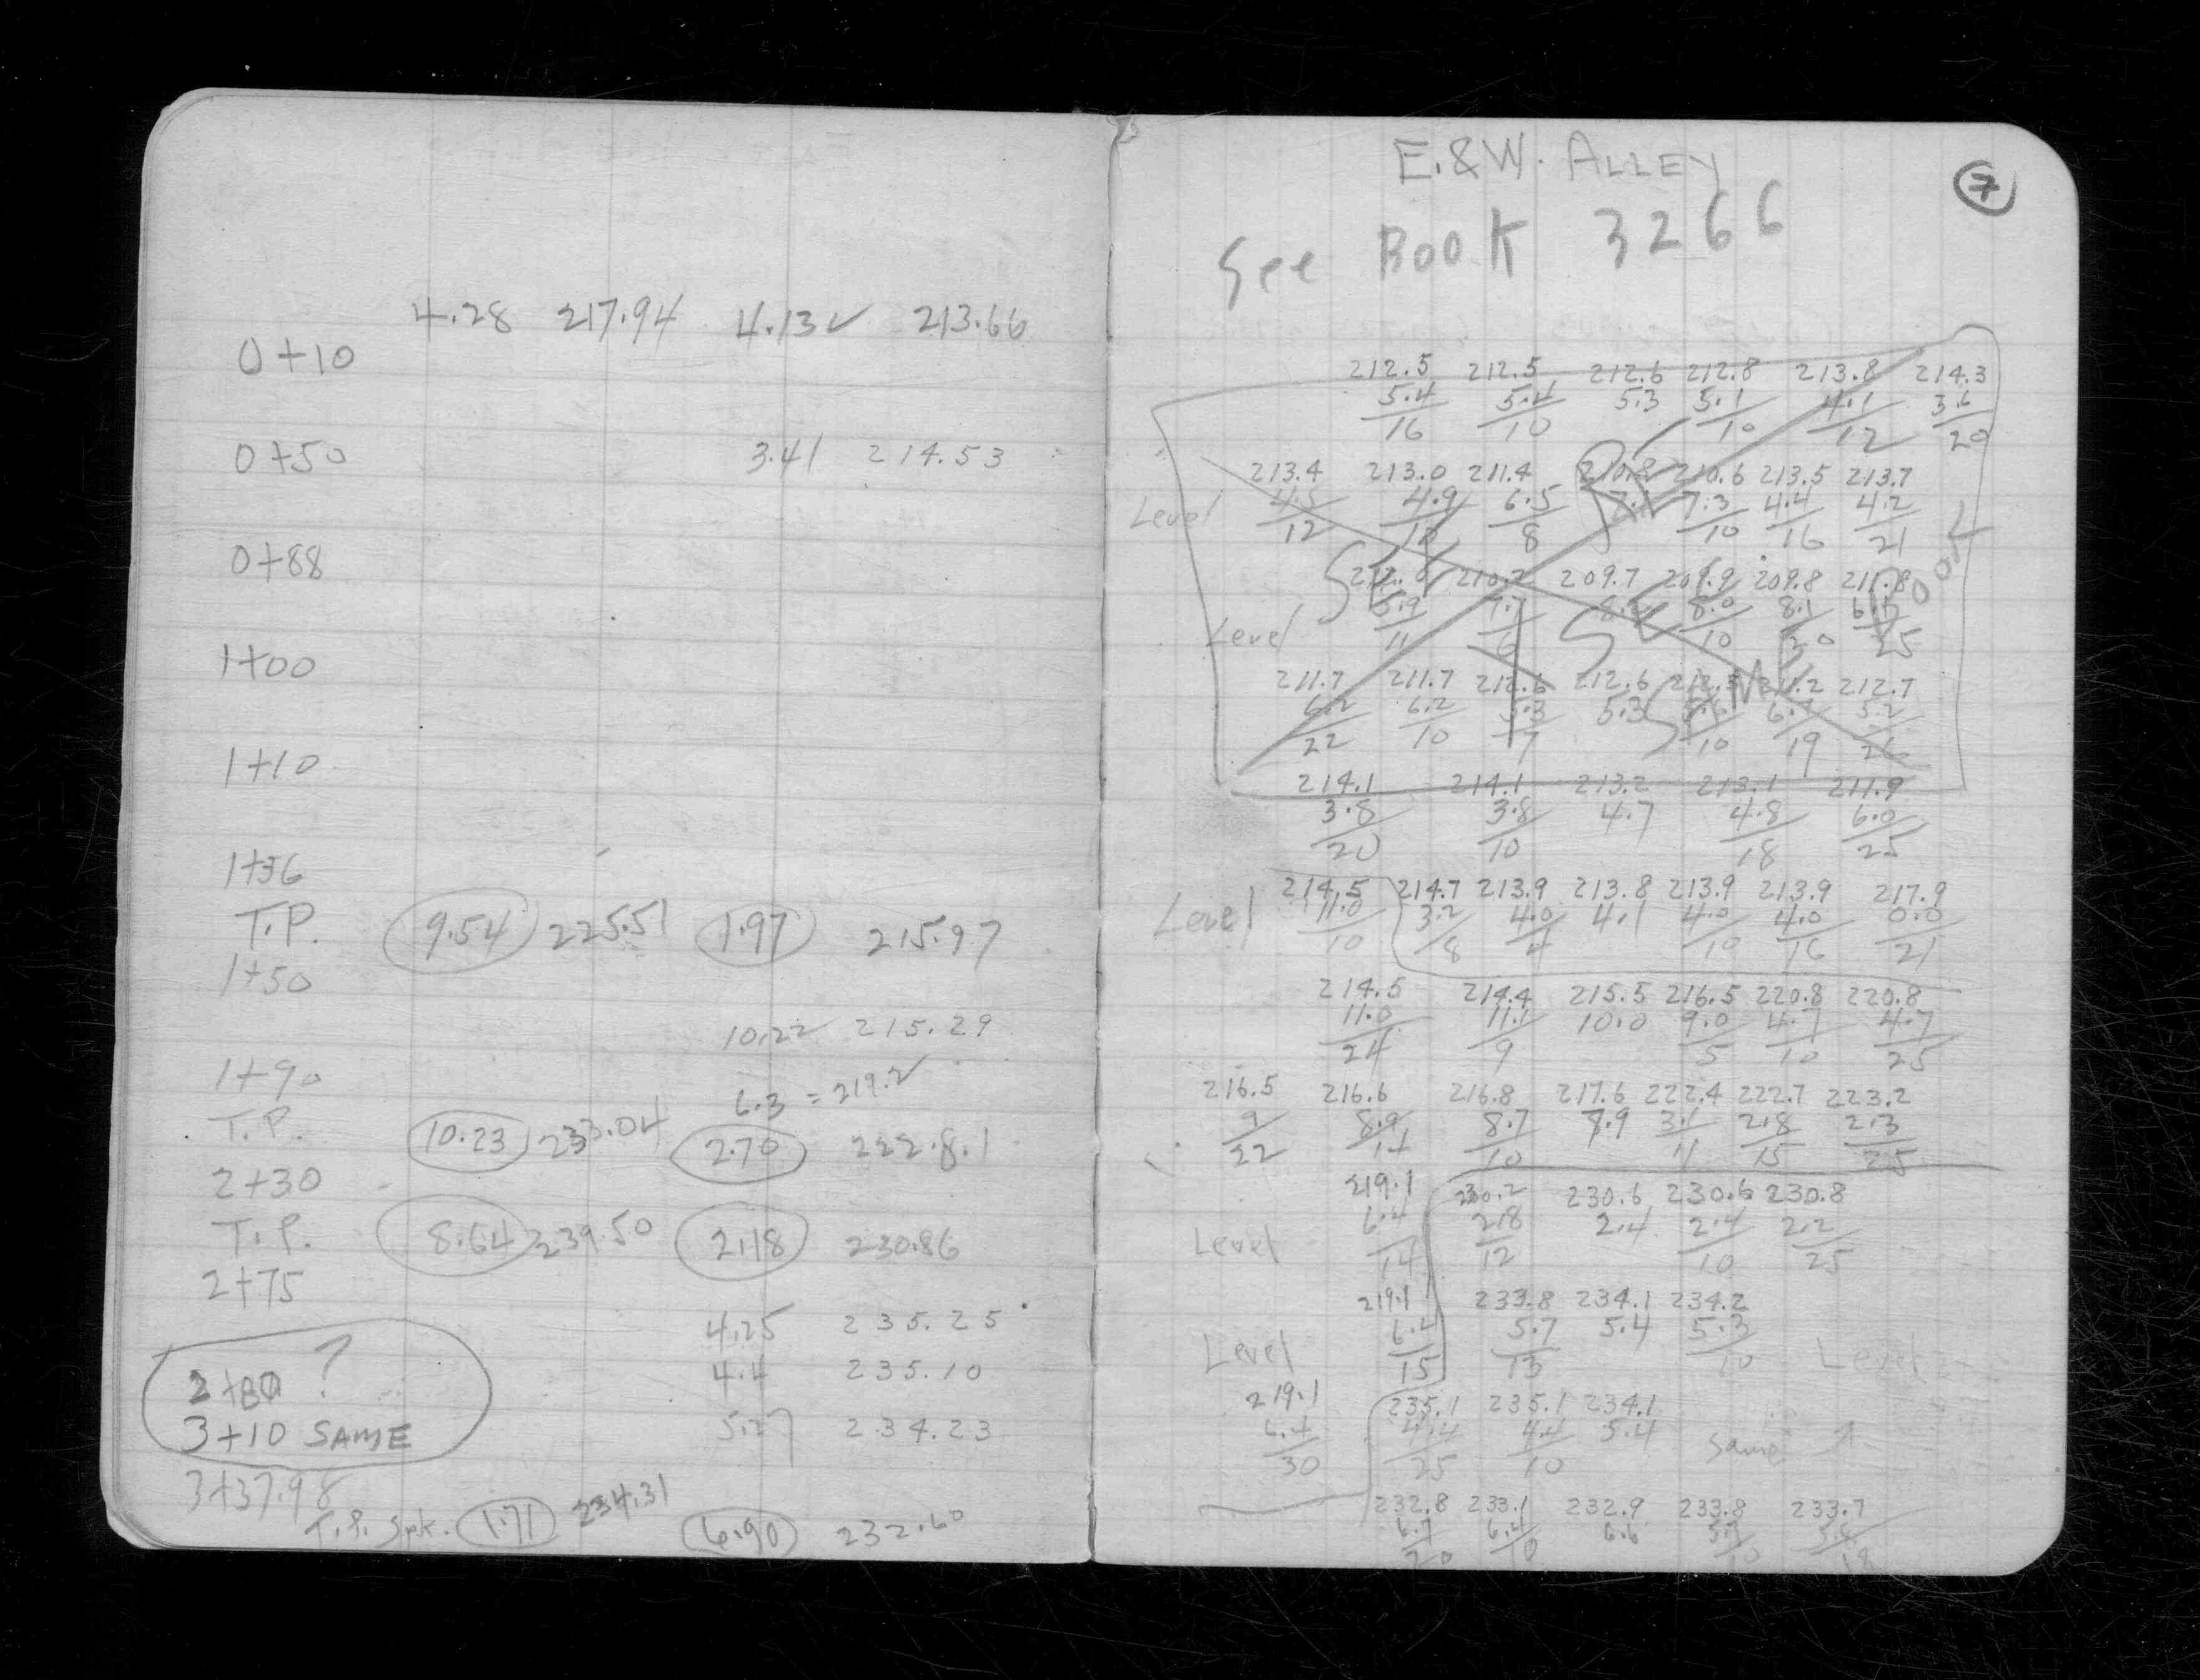 4.28 217.94 4.13✓ 213.66
0+10
0+50 3.41 214.53
0+88
1+00
1+10
1+36
T.P. 9.54 225.51 1.97 215.97
1+50
10.22 215.29
1+90 6.3 = 219.2✓
T.P. 10.23 233.04 2.70 222.8.1
2+30
T.P. 8.64 239.50 2.18 230.86
2+75
4.25 235.25
2+80 ? 4.4 235.10
3+10 SAME 5.27 234.23
3+37.98
T.P. Spk. 1.71 234.31 6.90 232.60
E.&W. ALLEY
7
See BOOK 3266
212.5 212.5 212.6 212.8 213.8 214.3
5.4 5.4 5.3 5.1 4.1 3.6
16 10 10 12 20
213.4 213.0 211.4 210.8 210.6 213.5 213.7
Level 4.5 4.9 6.5 7.1 7.3 4.4 4.2
12 8 10 16 21
212.0 210.2 209.7 209.9 209.8 211.8
5.9 7.7 8.0 8.1
Level 11 6 10 25
211.7 211.7 212.6 212.6 211.2 212.7
6.2 6.2 5.3 5.3 6.7 5.2
22 10 7 10 19 26
214.1 214.1 213.2 213.1 211.9
3.8 3.8 4.7 4.8 6.0
20 10 18 25
214.5 214.7 213.9 213.8 213.9 213.9 217.9
Level 11.0 3.2 4.0 4.1 4.0 4.0 0.0
10 8 4 10 16 21
214.5 214.4 215.5 216.5 220.8 220.8
11.0 11.1 10.0 9.0 4.7 4.7
24 9 5 10 25
216.5 216.6 216.8 217.6 222.4 222.7 223.2
9 8.9 8.7 7.9 3.1 2.8 2.3
22 14 10 11 15 25
219.1 230.2 230.6 230.6 230.8
6.4 2.8 2.4 2.4 2.2
Level 14 12 10 25
219.1 233.8 234.1 234.2
6.4 5.7 5.4 5.3
Level 15 13 10 Level
219.1 235.1 235.1 234.1
6.4 4.4 4.4 5.4 same
30 25 10
232.8 233.1 232.9 233.8 233.7
6.7 6.4 6.6 5.7 5.8
20 10 10 18